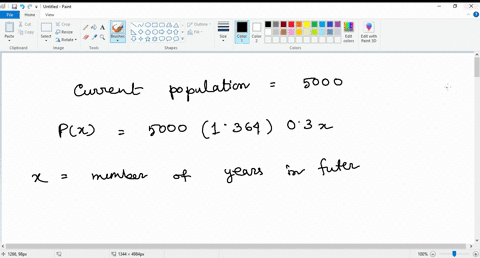 Untitled - Paint
File Home View
Paste
Cut
Copy
Clipboard
Select
Crop
Resize
Rotate
Image
Tools
Brushes
Shapes
Outline
Fill
Size
Color 1
Color 2
Edit colors
Edit with Paint 3D
Colors
Current population = 5000
P(x) = 5000 (1.364) 0.3x
x = member of years in futer
1344 × 4984px
100%